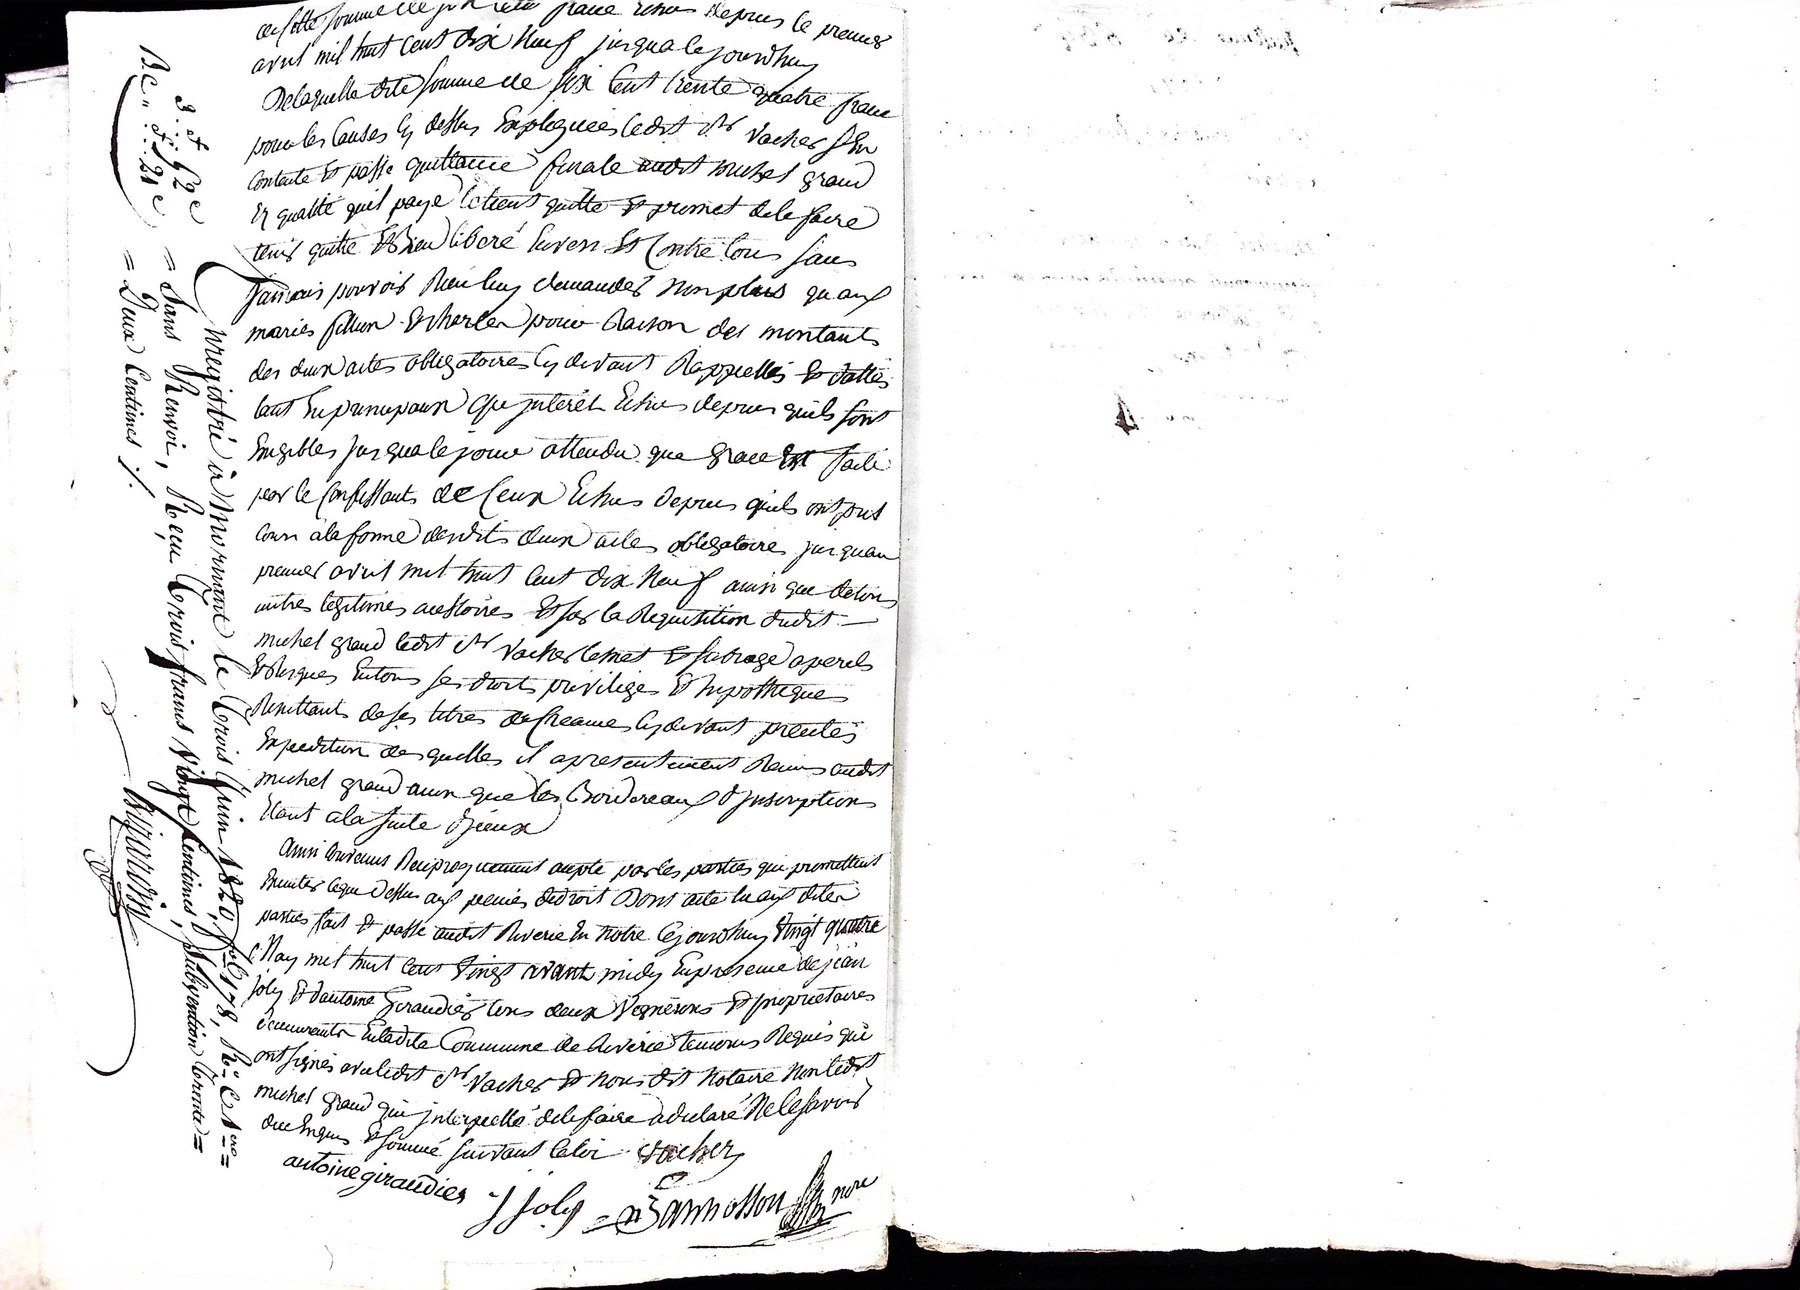 avril mil huit cent dix Neuf jusqua ce jourdhuy
De laquelle dite somme de six Cent trente quatre franc
pour les Causes cy dessus Expliquées ledit Sr Vacher s'En
Contente Et passe quittance finale audit michel grand
En qualité quil paye le tient quitte Et promet de le faire
tenir quitte Et Bien libéré Envers Et Contre tous sans
jamais pouvoir Rien luy demander non plus qu aux
mariés fillion Et charles pour Raison des montants
des deux actes obligatoires cy devant Rappellés Et dattés
tant En principaux que jnterêt Echus depuis quils sont
Exigibles jusqua ce jour attendu que grace Est faite
par le Confessant de Ceux Echus depuis quils ont pris
Cour à la forme desdits deux actes obligatoires jusquau
premier avril mil huit Cent dix Neuf ainsi que de tous
autres légitimes accessoires Et sur la Requisition dudit
michel grand ledit Sr Vacher le met Et subroge a perils
Et Risques En tous ses droits privilèges Et hypotheques
Remettant de ses titres de Creances cy devant
Expedition desquelles il a presentement Remis audit
michel grand ainsi que les Bordereaux d'jnscription
Etant a la suite d'jceux
Ainsi Convenu Reciproquement accepté par les parties qui promettent
Executer ce que Dessus aux peines de droit Dont acte lu aux dites
parties fait Et passé audit Riverie En notre Cejourdhuy Vingt quatre
May mil huit Cent Vingt avant midy En presence de jean
joly Et d'antoine Giraudier tous deux Vignerons Et propriétaires
demeurants En ladite Commune de Riverie temoins Requis qui
ont signés avec ledit Sr Vacher Et nous dit Notaire non ledit
michel grand qui jnterpellé de le faire a declaré Ne le savoir
de ce Enquis Et sommé suivant la loi Vacher
antoine giraudier
j joly
nre
Enregistré à Mornant le trois Juin 1820, fol. 178, Ro. C. 1ere =
= Sans Renvoi, Reçu trois francs Vingt Centimes, Subvention trente =
= Deux Centimes ./.
3 " f " 52 c
Dc " f " 21 c